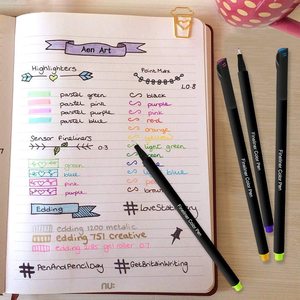 Pen Art
Highlighters
Point Max
L0.8
pastel green
pastel pink
pastel purple
pastel blue
black
purple
pink
red
orange
yellow
light green
green
Sensor Fineliners
0.3
green
blue
pink
purple
blue
Edding
#LoveStationery
edding 1200 metalic
edding 751 creative
edding 2185 gel roller 0.7
#PenAndPencilDay
#GetBritainWriting
nu:
Fineliner Color Pen
Fineliner Color Pen
Fineliner Color Pen
Fineliner Color Pen